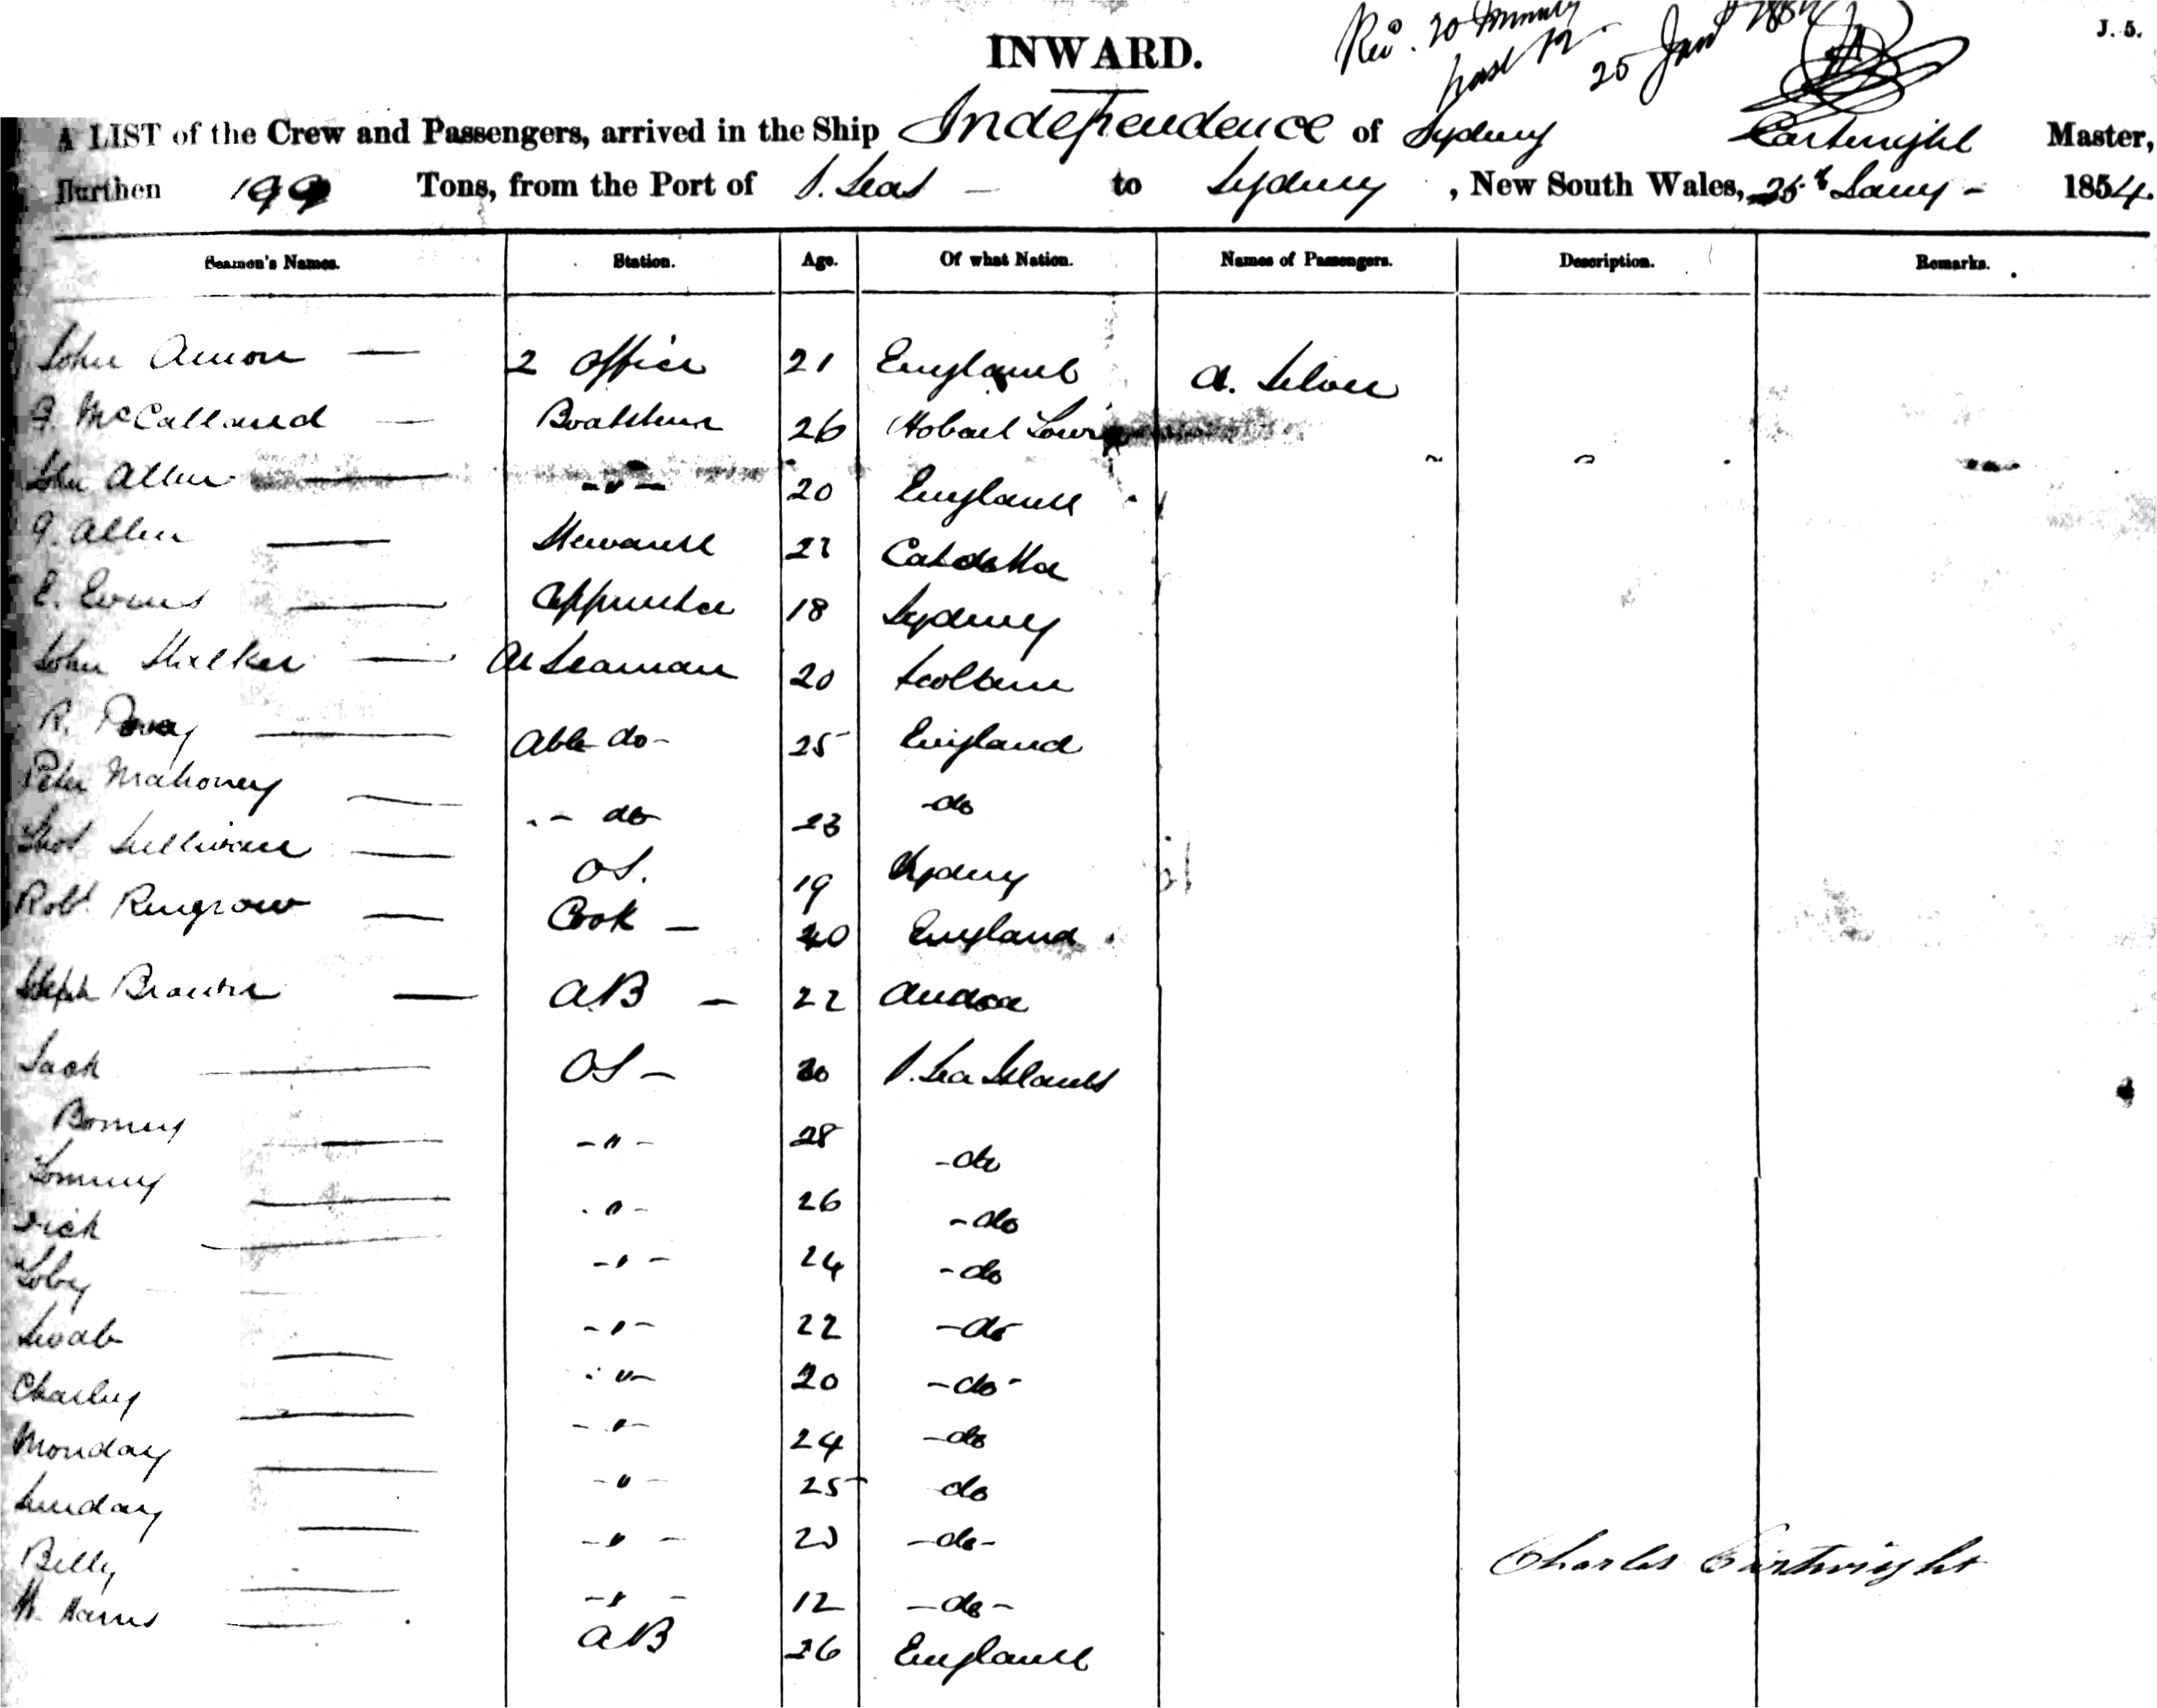 INWARD.
J. 5.
Recd. 20 minutes
past 12
25 Jany 1854
A LIST of the Crew and Passengers, arrived in the Ship Independence of Sydney Cartwright Master,
Burthen 199 Tons, from the Port of S. Seas — to Sydney, New South Wales, 25th Jany - 1854.
Seamen's Names. Station. Age. Of what Nation. Names of Passengers. Description. Remarks.
John — 2 Officer 21 England A. Silver
McCalland — 26 Hobart Town
John Allen — -"- 20 England
Allen — Steward Calcutta
E. Evans — Apprentice 18 Sydney
John Stalker — Seaman 20
R. — Able do- 25 England
Peter Mahoney — - do 23 -do
Thos Sullivan — OS. 19 Sydney
Robt — Cook — 40 England
Joseph — AB — 22
Jack — OS - 20 S. Sea Islands
-"- 28 -do
Tommy — "- 26 -do
Dick — -"- 24 -do
Toby -"- 22 -do-
— "- 20 -do-
Charley — -"- 24 -do
Monday — -"- 25 do
Sunday — -"- 20 -do-
Billy — -"- 12 -do-
Harris — AB 26 England
Charles Cartwright